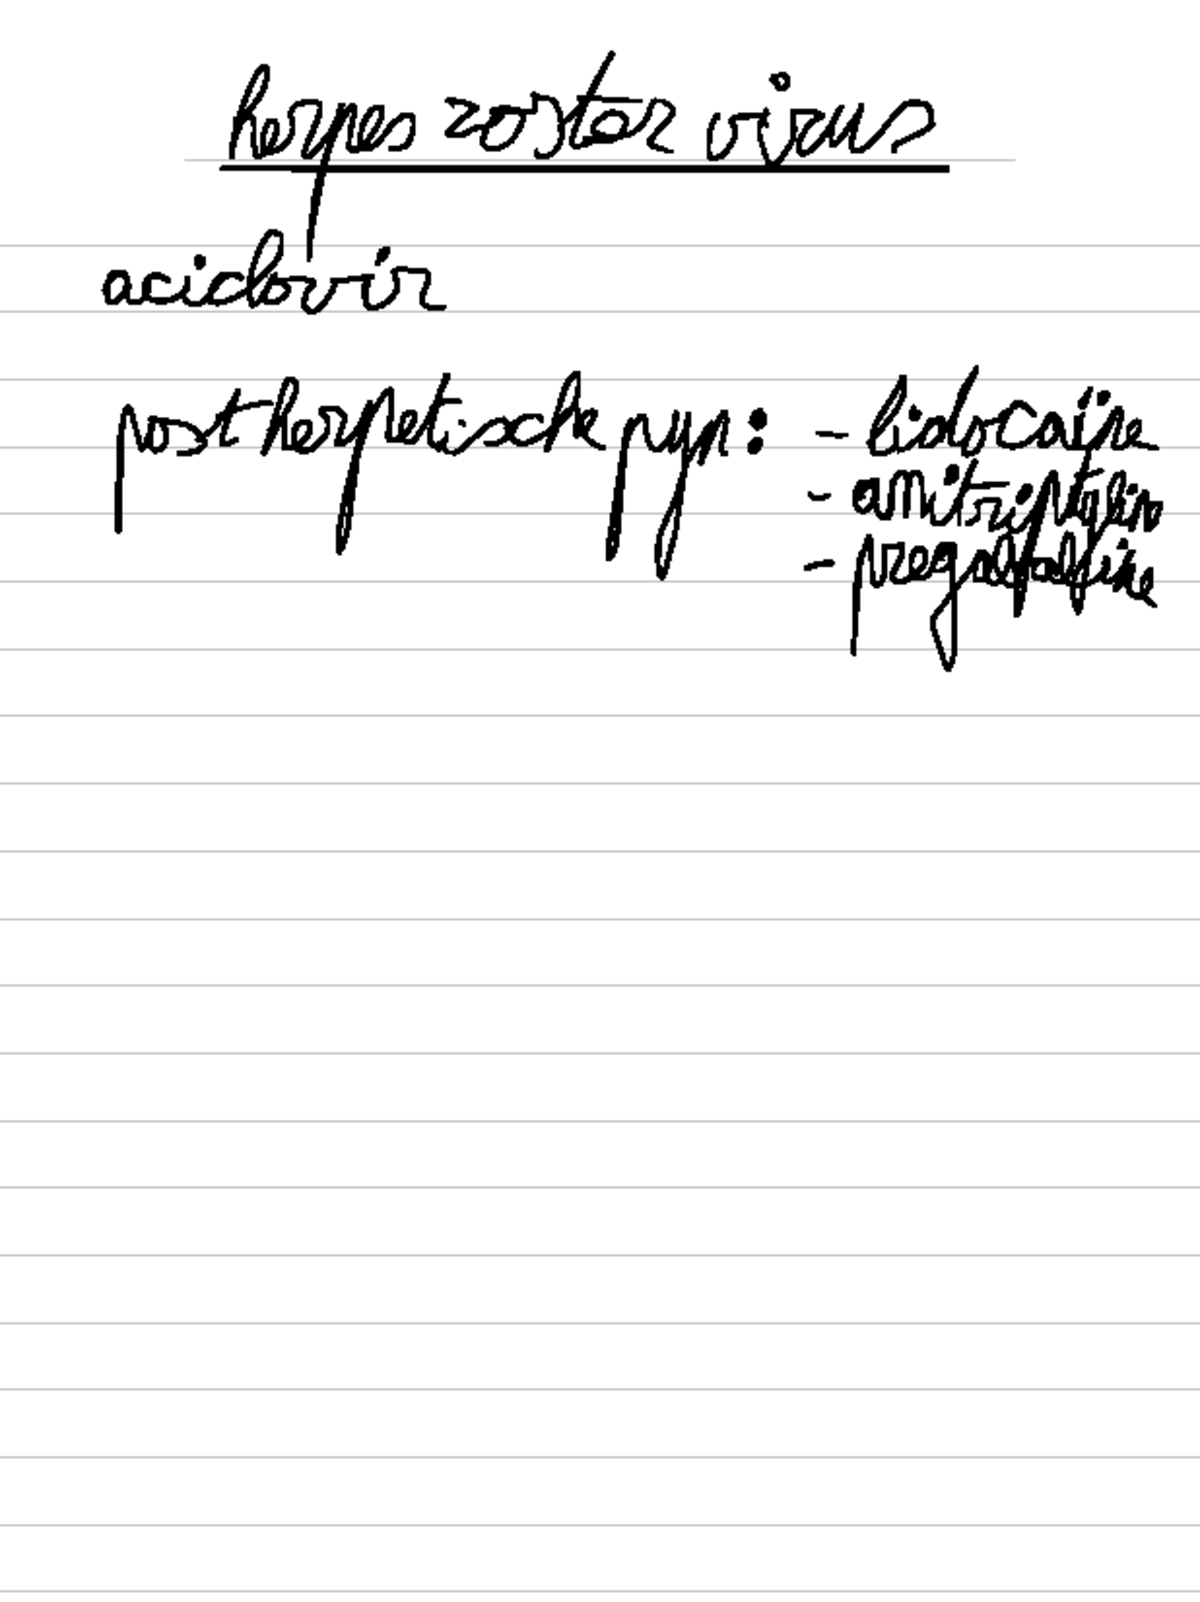 herpes zoster virus
aciclovir
post herpetische pyn: - lidocaïne
- amitriptylin
- pregabaline